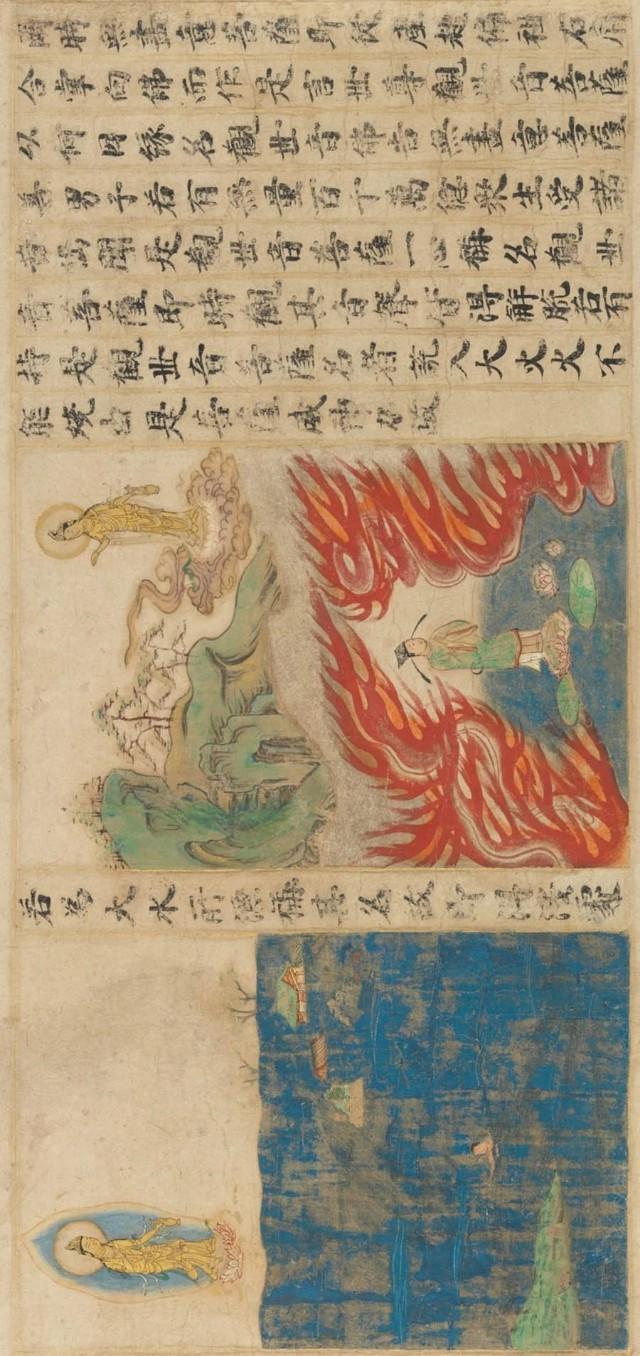 爾時無盡意菩薩即從座起偏袒右肩
合掌向佛而作是言世尊觀世音菩薩
以何因緣名觀世音佛告無盡意菩薩
善男子若有無量百千萬億衆生受諸
苦惱聞是觀世音菩薩一心稱名觀世
音菩薩即時觀其音聲皆得解脫若有
持是觀世音菩薩名者設入大火火不
能燒由是菩薩威神力故
若為大水所漂稱其名號即得淺處